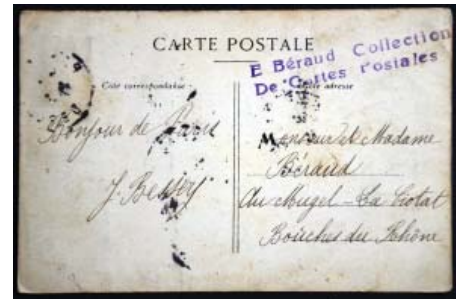 CARTE POSTALE
E Béraud Collection
De Cartes Postales
Côté correspondance
adresse
Bonjour de Paris
J. Bessey
Monsieur et Madame
Béraud
Au Mugel - La Ciotat
Bouches du Rhône